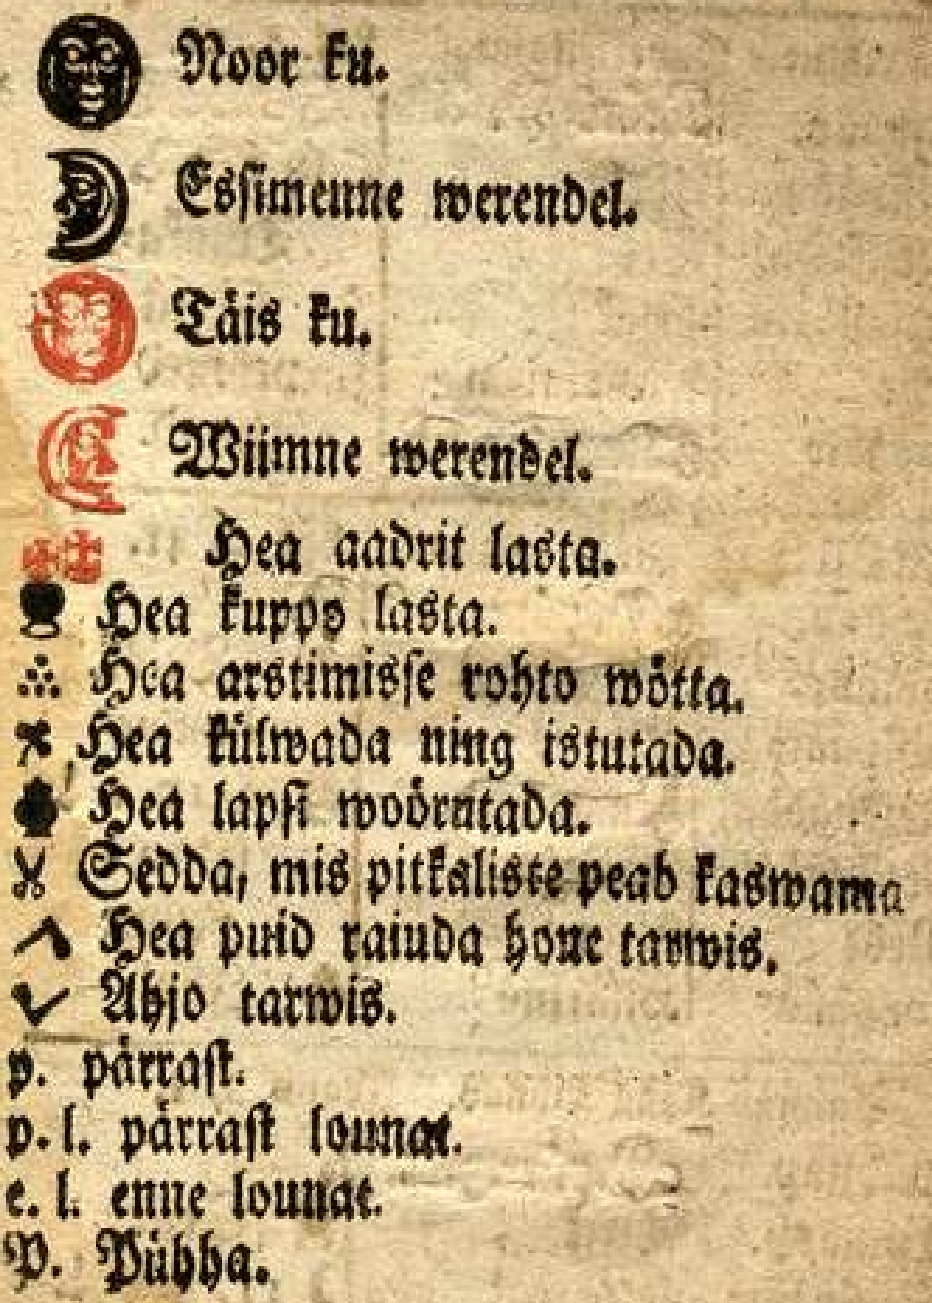 Noor ku.
Essimenne werendel.
Täis ku.
Wiimne werendel.
Hea aadrit lasta.
Hea kuppo lasta.
Hea arstimisse rohto wötta.
Hea külwada ning istutada.
Hea lapsi woörutada.
Sedda, mis pitkaliste peab kaswama
Hea puid raiuda hone tarwis.
Ahjo tarwis.
p. pärrast.
p. l. pärrast lounat.
e. l. enne lounat.
P. Pühha.